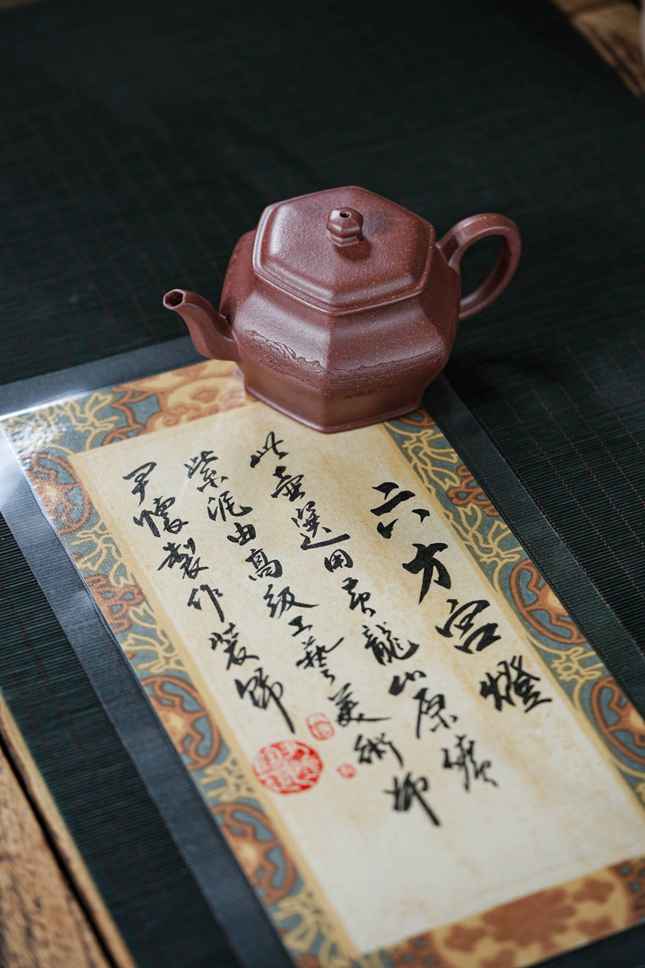 六方宫燈
此壺選用黄龍山原礦
紫泥由高级工藝美術师
尹懷製作装飾